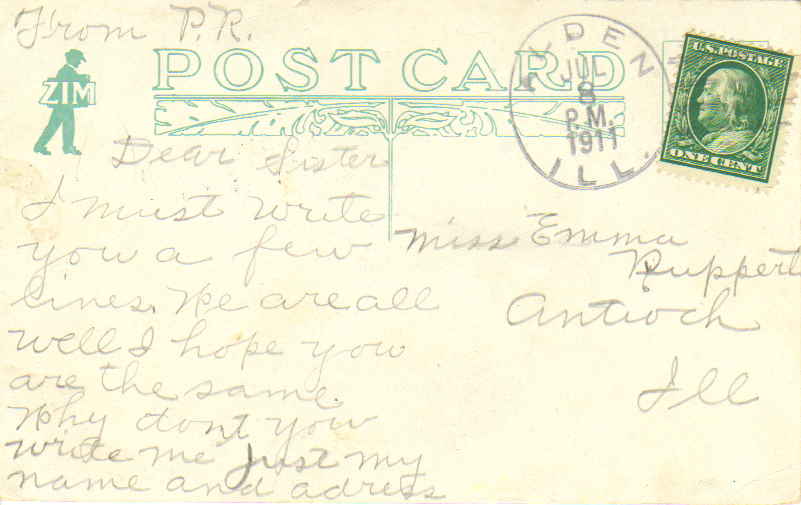 From P.R.
ZIM
POST CARD
DEN
JUL
8
P.M.
1911
ILL.
U.S. POSTAGE
ONE CENT
Dear Sister
I must write
you a few
lines. We are all
well I hope you
are the same.
Why dont you
write me just my
name and adress
Miss Emma
Ruppert
Antioch
Ill